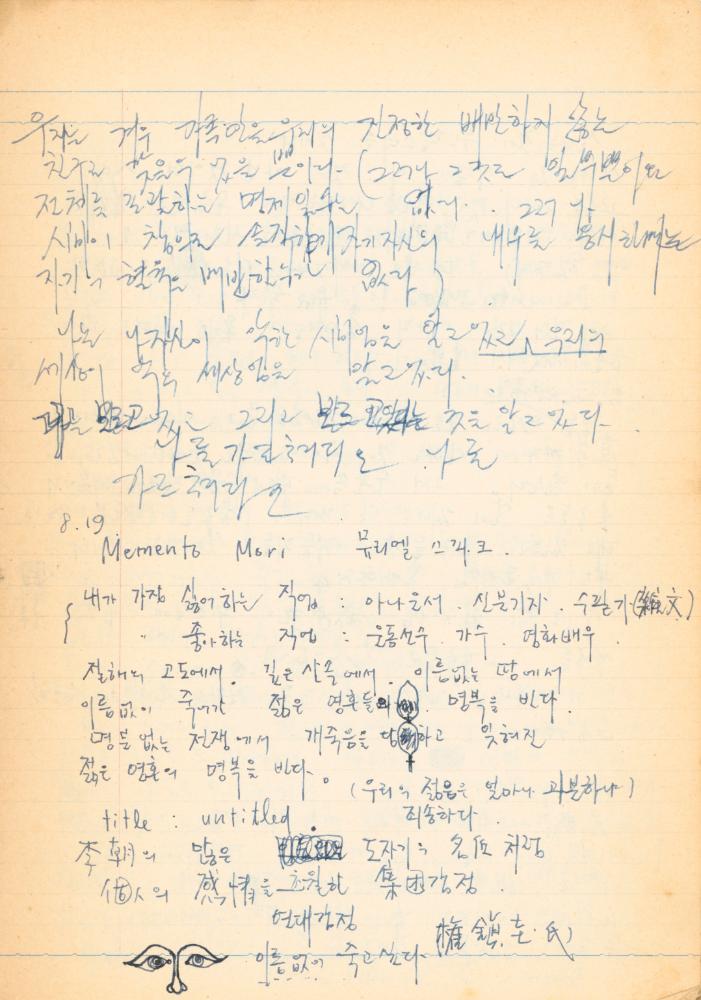 우리는 겨우 가족만을 우리의 진정한 배반하지 않는
친구로 갖을 수 있을 뿐이다. (그러나 그것도 일부분이오
전체를 일괄하는 명제일 수는 없다. 그러나
시민이 자기자신의 내부를 응시하며는
자기의 혈육은 배반할 수는 없다)
나는 나 자신이 악한 시민임을 알고 있고 우리의
세상이 악한 세상임을 알고 있다.
모르고 있고 그리고 있는 것을 알고 있다.
나를
8.19
Memento Mori 뮤리엘 스파크.
내가 가장 싫어하는 직업 : 아나운서. 신문기자. 수필가 (雜文)
〃 좋아하는 직업 : 운동선수. 가수. 영화배우.
절해의 고도에서. 깊은 산속에서. 이름없는 땅에서
이름없이 죽어간 젊은 영혼들의 명복을 빈다.
명분 없는 전쟁에서 개죽음을 당하고 잊혀진
젊은 영혼의 명복을 빈다.
(우리의 젊음은 얼마나 과분하냐)
죄송하다.
title : untitled.
李朝의 많은 도자기의 名匠처럼
個人의 感情을 초월한 集団감정.
연대감정
權鎭圭 氏
이름없이 죽고 싶다.